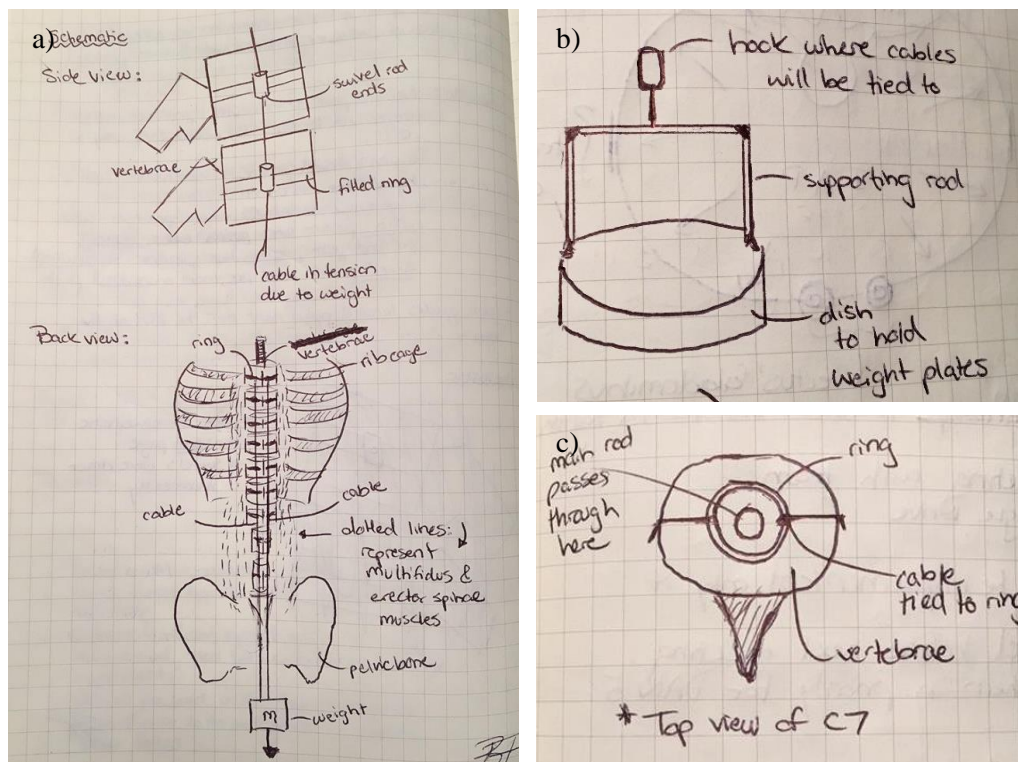 a)
Schematic
Side view:
swivel rod
ends
vertebrae
filled ring
cable in tension
due to weight
Back view:
ring
vertebrae
ribcage
cable
cable
dotted lines:
represent
multifidus &
erector spinae
muscles
pelvic bone
m
weight
b)
hook where cables
will be tied to
supporting rod
dish
to hold
weight plates
c)
main rod
passes
through
here
ring
cable
tied to ring
vertebrae
* Top view of C7